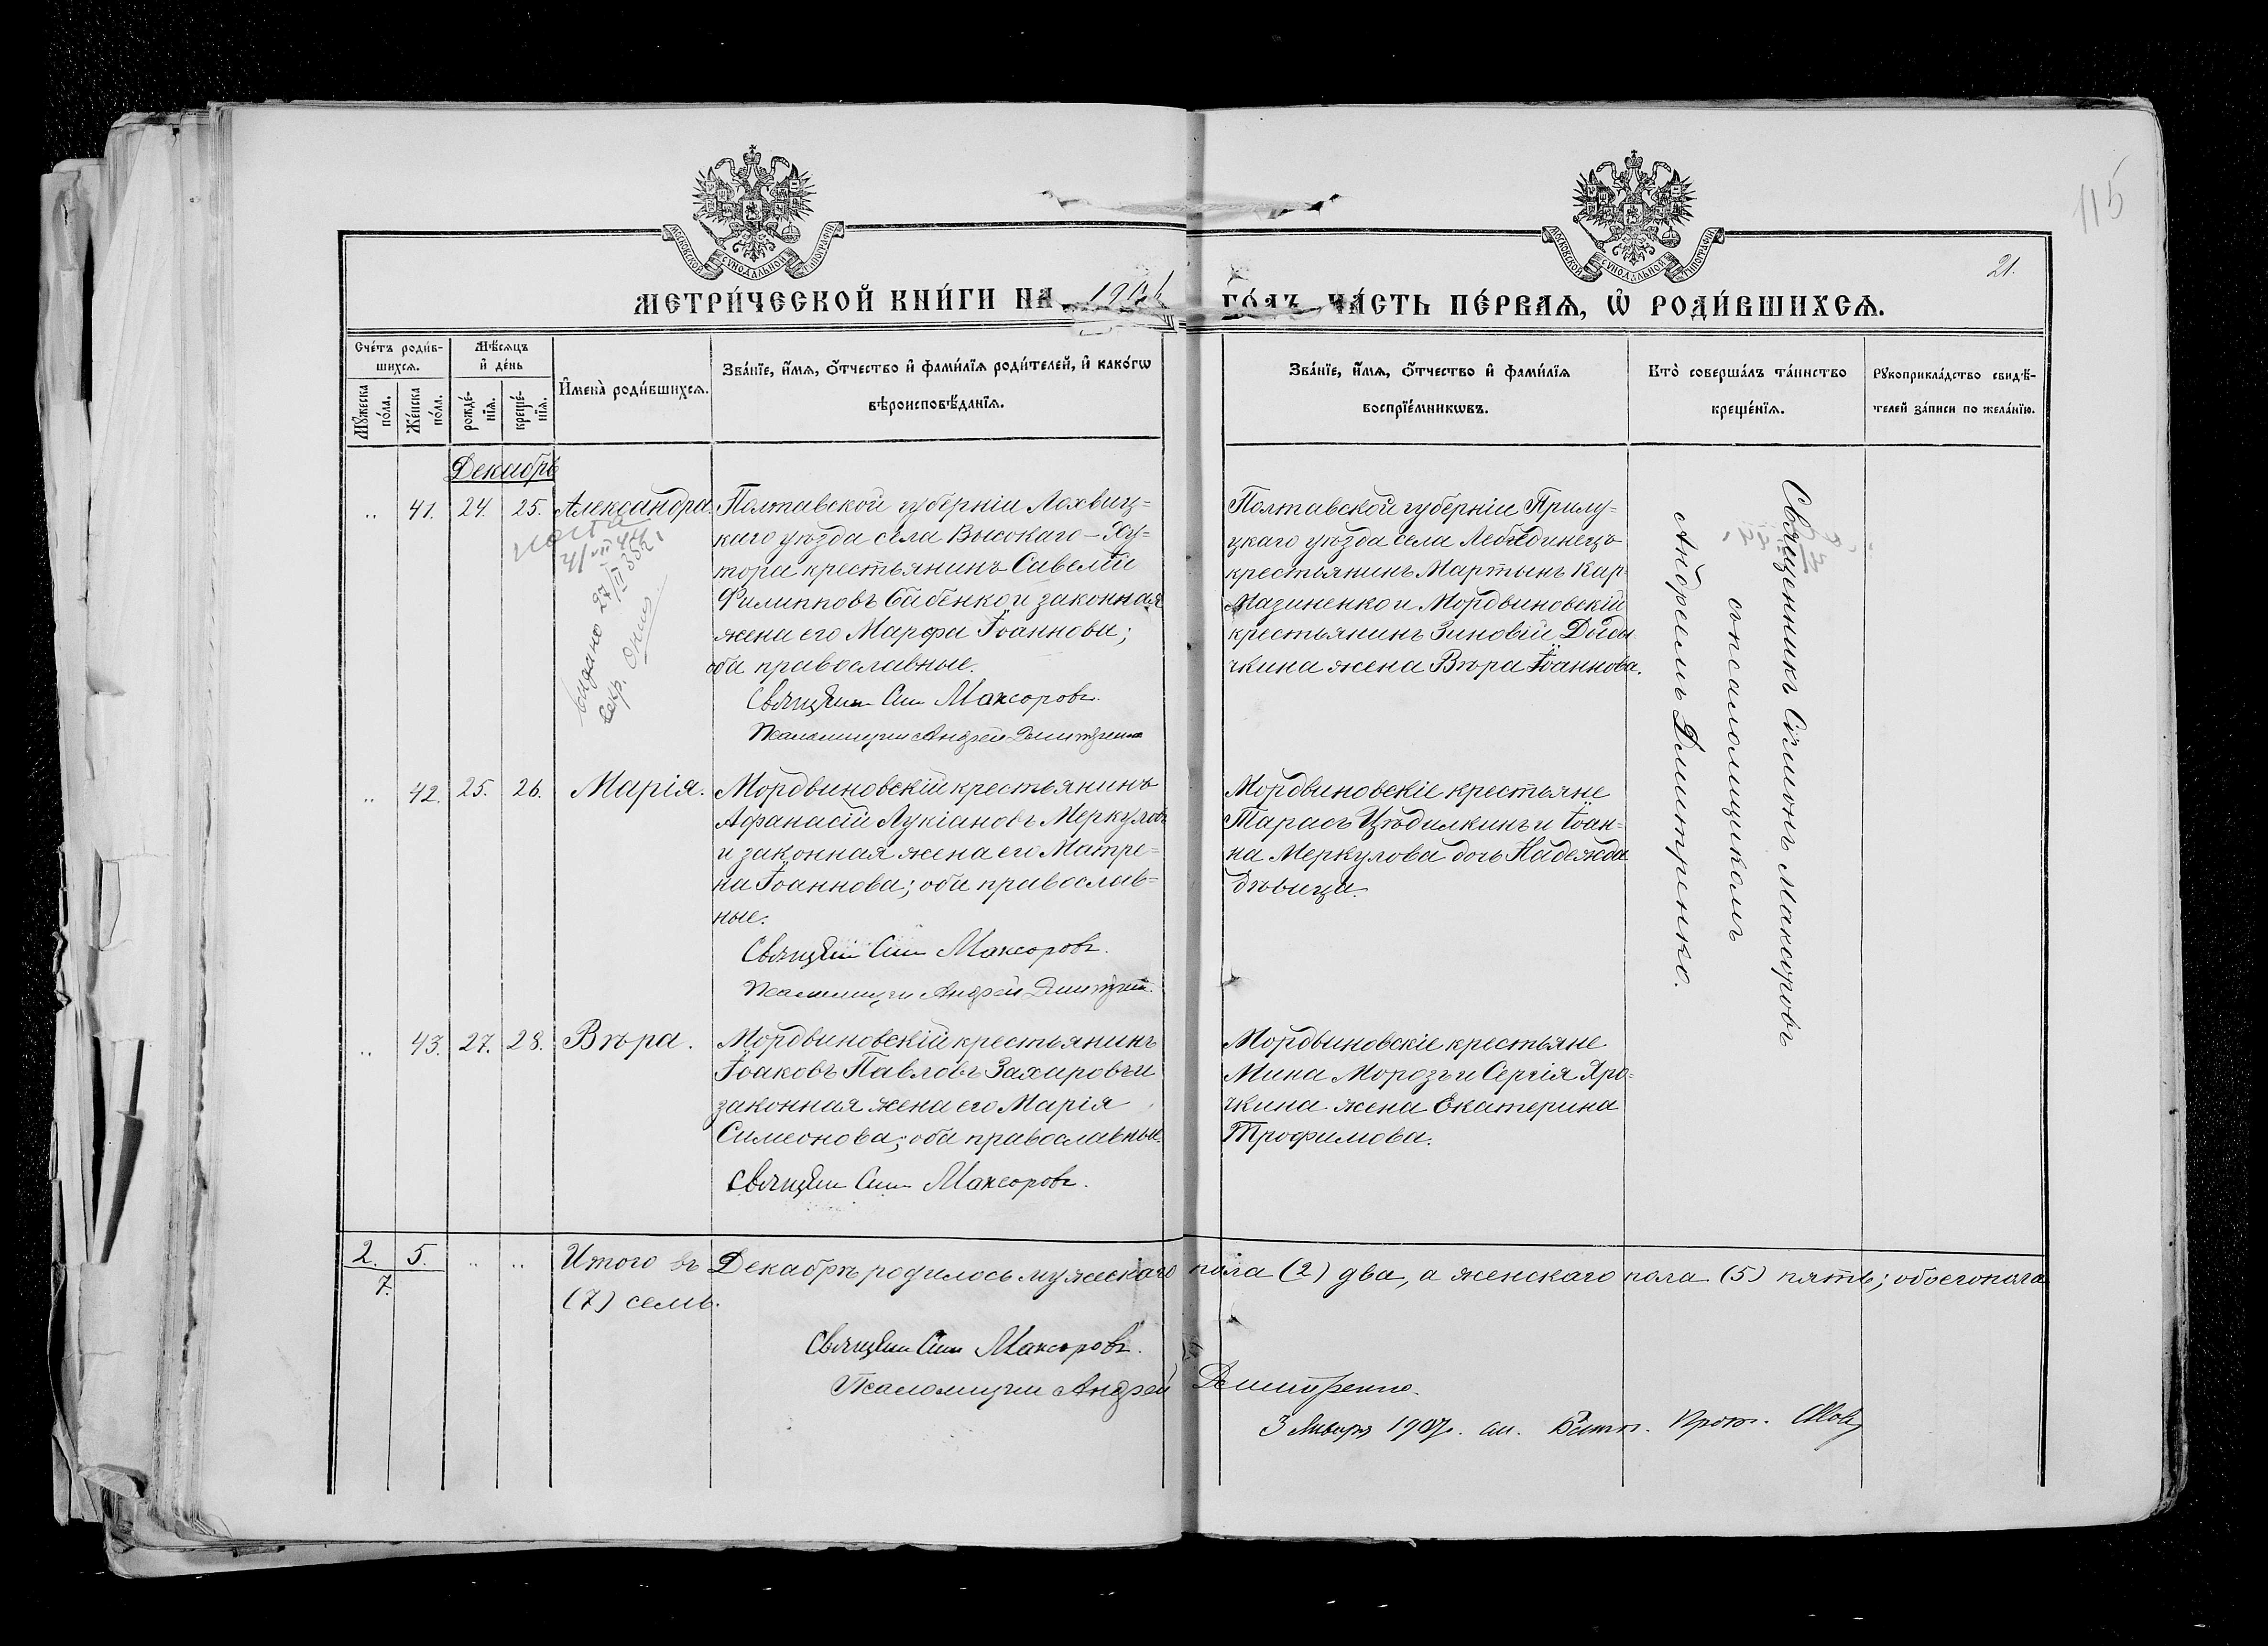 115
21.
МОСКОВСКОЙ СѴНОДАЛЬНОЙ ТИПОГРАФІИ
МОСКОВСКОЙ СѴНОДАЛЬНОЙ ТИПОГРАФІИ
МЕТРИ́ЧЕСКОЙ КНИ́ГИ НА 1906 ГО́ДЪ, ЧА́СТЬ ПЕ́РВАѦ, Ѡ҆ РОДИ́ВШИХСѦ.
Сче́тъ роди́в-
шихсѧ.
Мꙋ́жеска
по́ла.
Же́нска
по́ла.
Мѣ́сѧцъ
и҆ де́нь
рожде́-
нїѧ.
креще́-
нїѧ.
И҆мена̀ роди́вшихсѧ.
Зва́нїе, и҆́мѧ, ѻ҆́тчество и҆ фами́лїѧ роди́телей, и҆ како́гѡ
вѣроисповѣ́данїѧ.
Зва́нїе, и҆́мѧ, ѻ҆́тчество и҆ фами́лїѧ
воспрїе́мникѡвъ.
Кто̀ соверша́лъ та́инство
креще́нїѧ.
Рꙋкоприкла́дство свидѣ́-
телей за́писи по жела́нїю.
Декабрь
" 41. 24. 25. Александра.
Полтавской губерніи Лохвиц=
каго уѣзда села Высокаго-Ху=
тора крестьянинъ Савелій
Филипповъ Бабенко и законная
жена его Марѳа Іоаннова;
оба православные.
Священ. Сим. Максоровъ.
Псаломщикъ Андрей Дмитренко
Полтавской губерніи Прилу=
цкаго уѣзда села Лебединецъ
крестьянинъ Мартынъ Кар=
мазиненко и Мордвиновскій
крестьянинъ Зиновій Дога
чкина жена Вѣра Іоаннова.
выдано 27/II 52
Священникъ Симеонъ Максоровъ
съ псаломщикомъ
Андреемъ Дмитренко.
" 42. 25. 26. Марія.
Мордвиновскій крестьянинъ
Аѳанасій Лукіановъ Меркуловъ
и законная жена его Матре=
на Іоаннова; оба православ=
ные.
Священ. Сим. Максоровъ.
Псаломщикъ Андрей Дмитренко.
Мордвиновскіе крестьяне
Тарасъ Цѣдилкинъ и Іоан=
на Меркулова дочь Надежда
дѣвица.
" 43. 27. 28. Вѣра.
Мордвиновскій крестьянинъ
Іоаковъ Павловъ Захаровъ и
законная жена его Марія
Симеонова; оба православные.
Священ. Сим. Максоровъ.
Мордвиновскіе крестьяне
Мина Морозъ и Сергія Хро=
чкина жена Екатерина
Трофимова.
2. 5. " " Итого въ Декабрѣ родилось мужескаго пола (2) два, а женскаго пола (5) пять; обоего пола
7. (7) семь.
Священ. Сим. Максоровъ.
Псаломщикъ Андрей Дмитренко.
3 Января 1907 г.